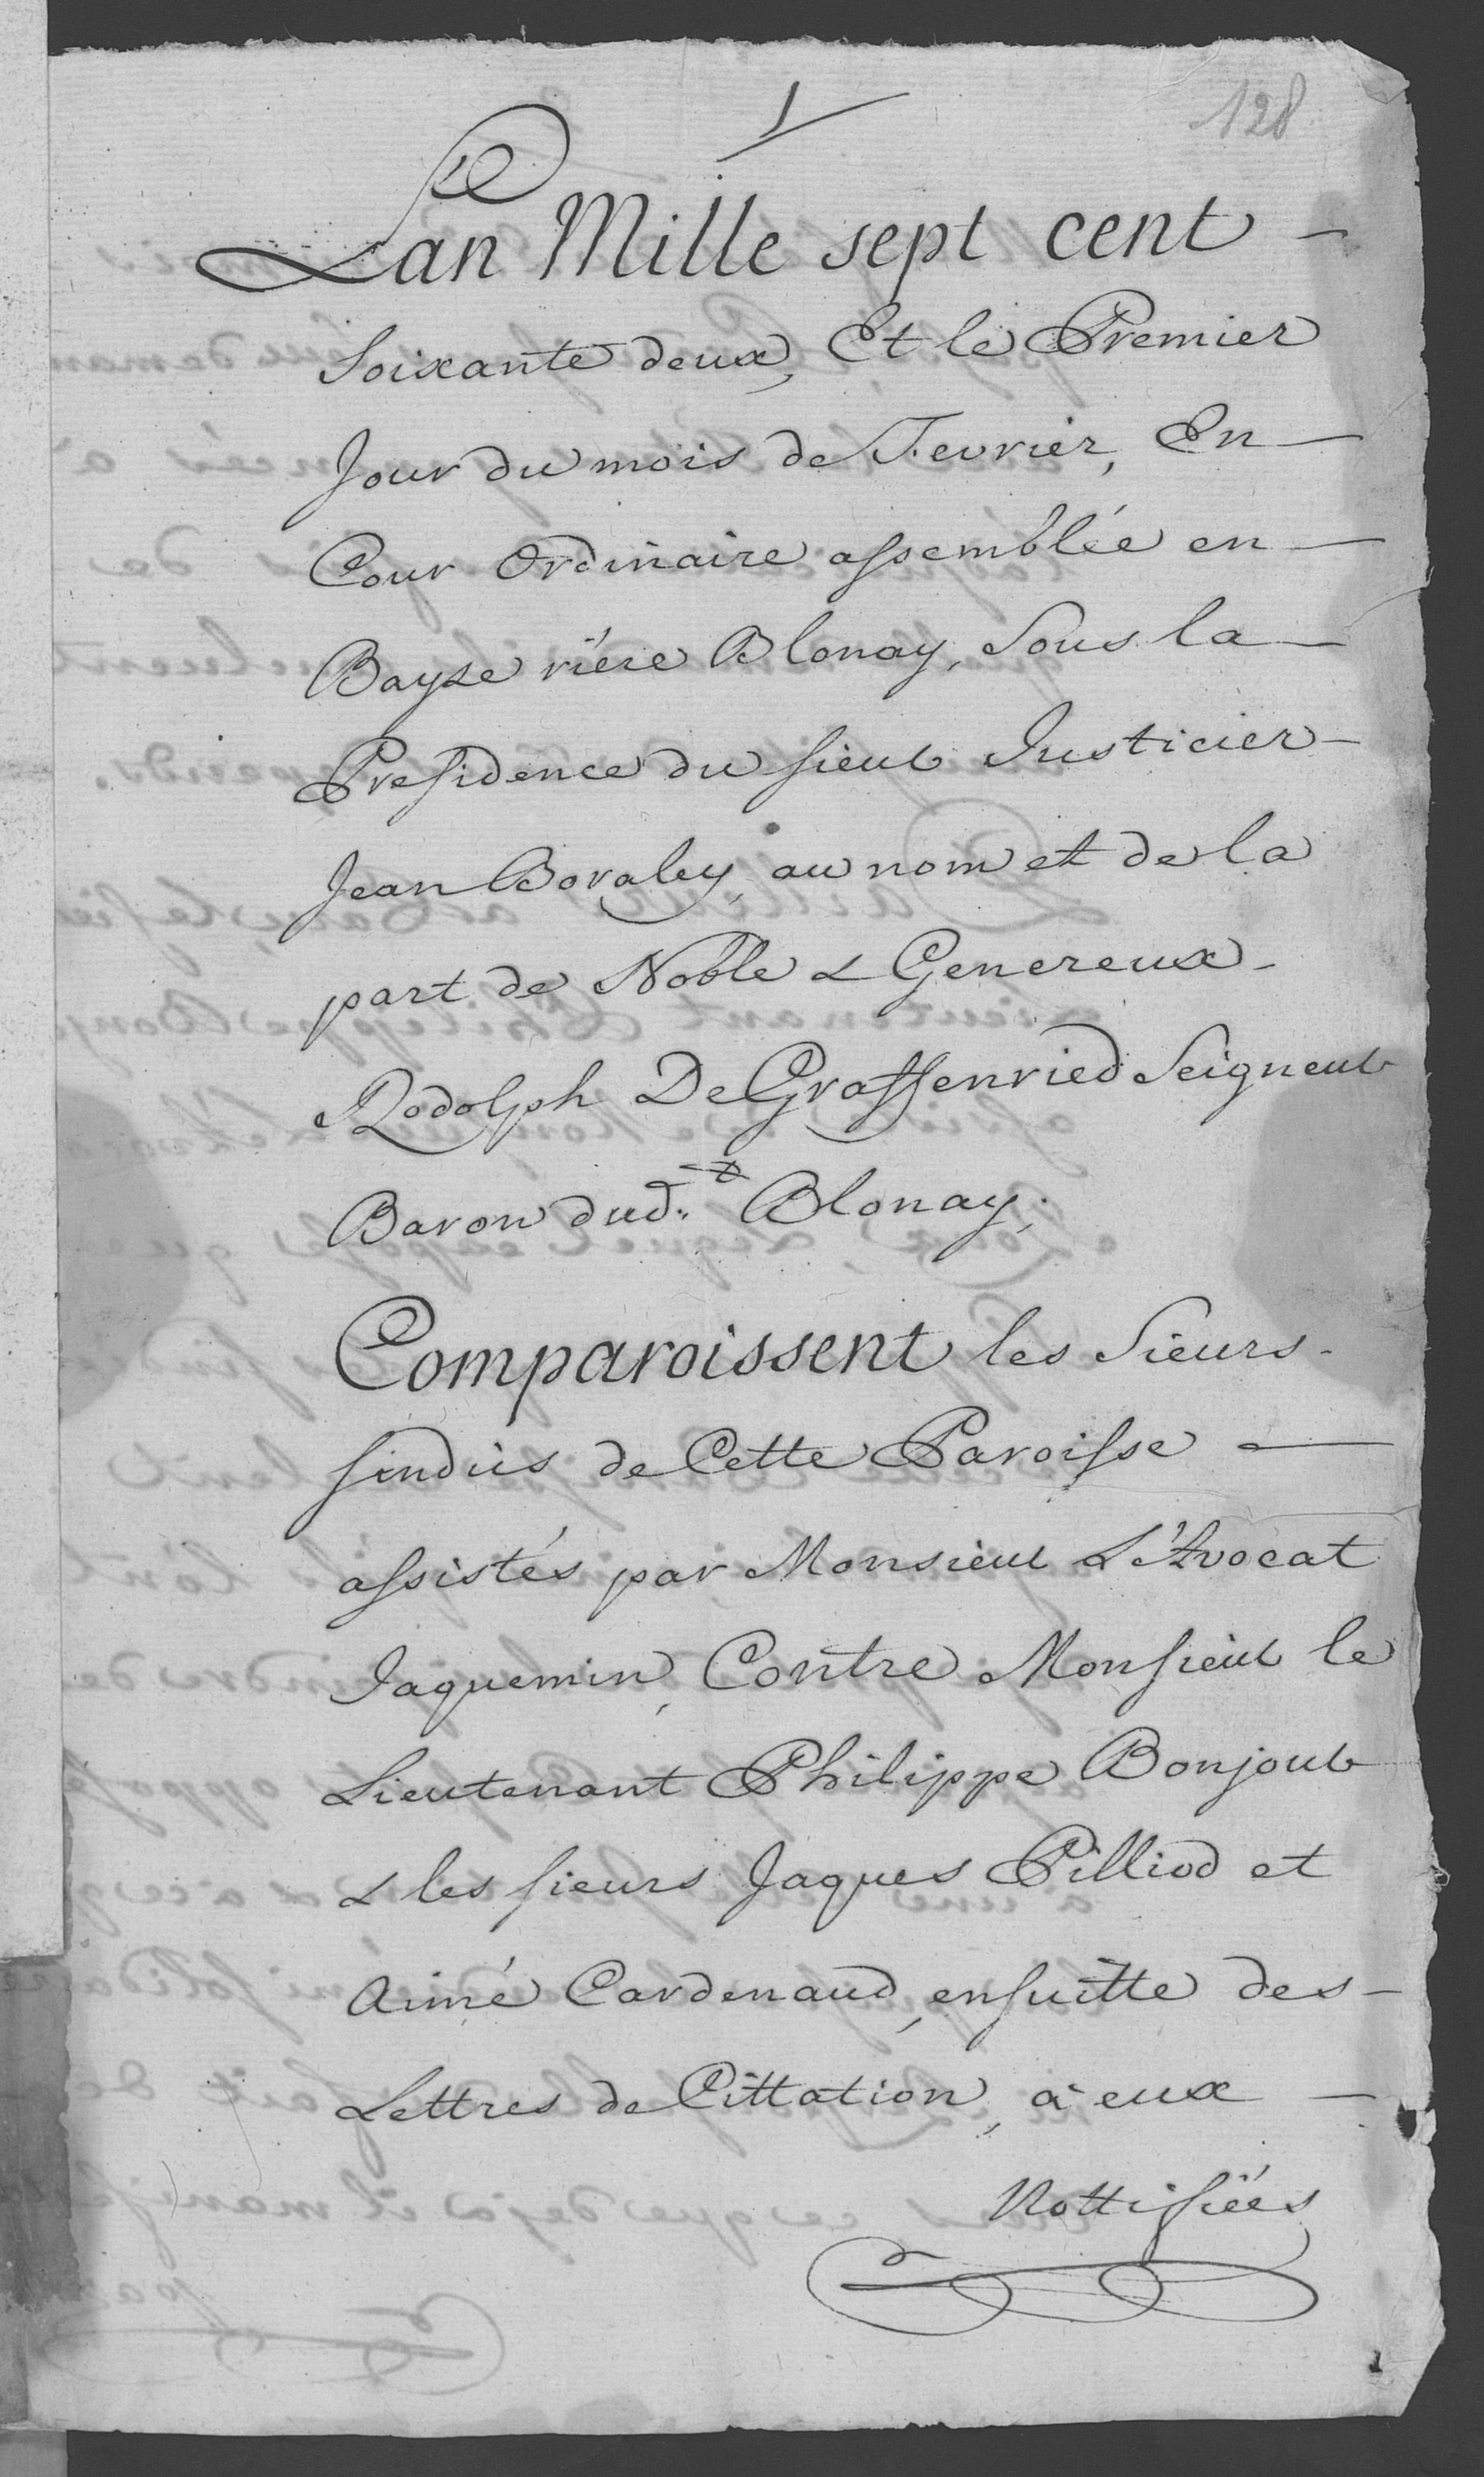 1
128
Lan Mille sept cent
Soixante deux, Et le Premier
Jour du mois de Fevrier, En
Cour Ordinaire assemblée en
Bayse riére Blonay, Sous la
Presidence du sieur Justicier
Jean Boraley, au nom et de la
part de Noble & Genereux
Rodolph De Graffenried Seigneur
Baron dud.t Blonay;
Comparoissent les Sieurs
sindics de Cette Paroisse
assistés par Monsieur L'Avocat
Jaquemin, Contre Monsieur le
Lieutenant Philippe Bonjour
& les sieurs Jaques Pilliod et
Aimé Cardenaud, ensuitte des
Lettres de Cittation, à eux
Nottifiées